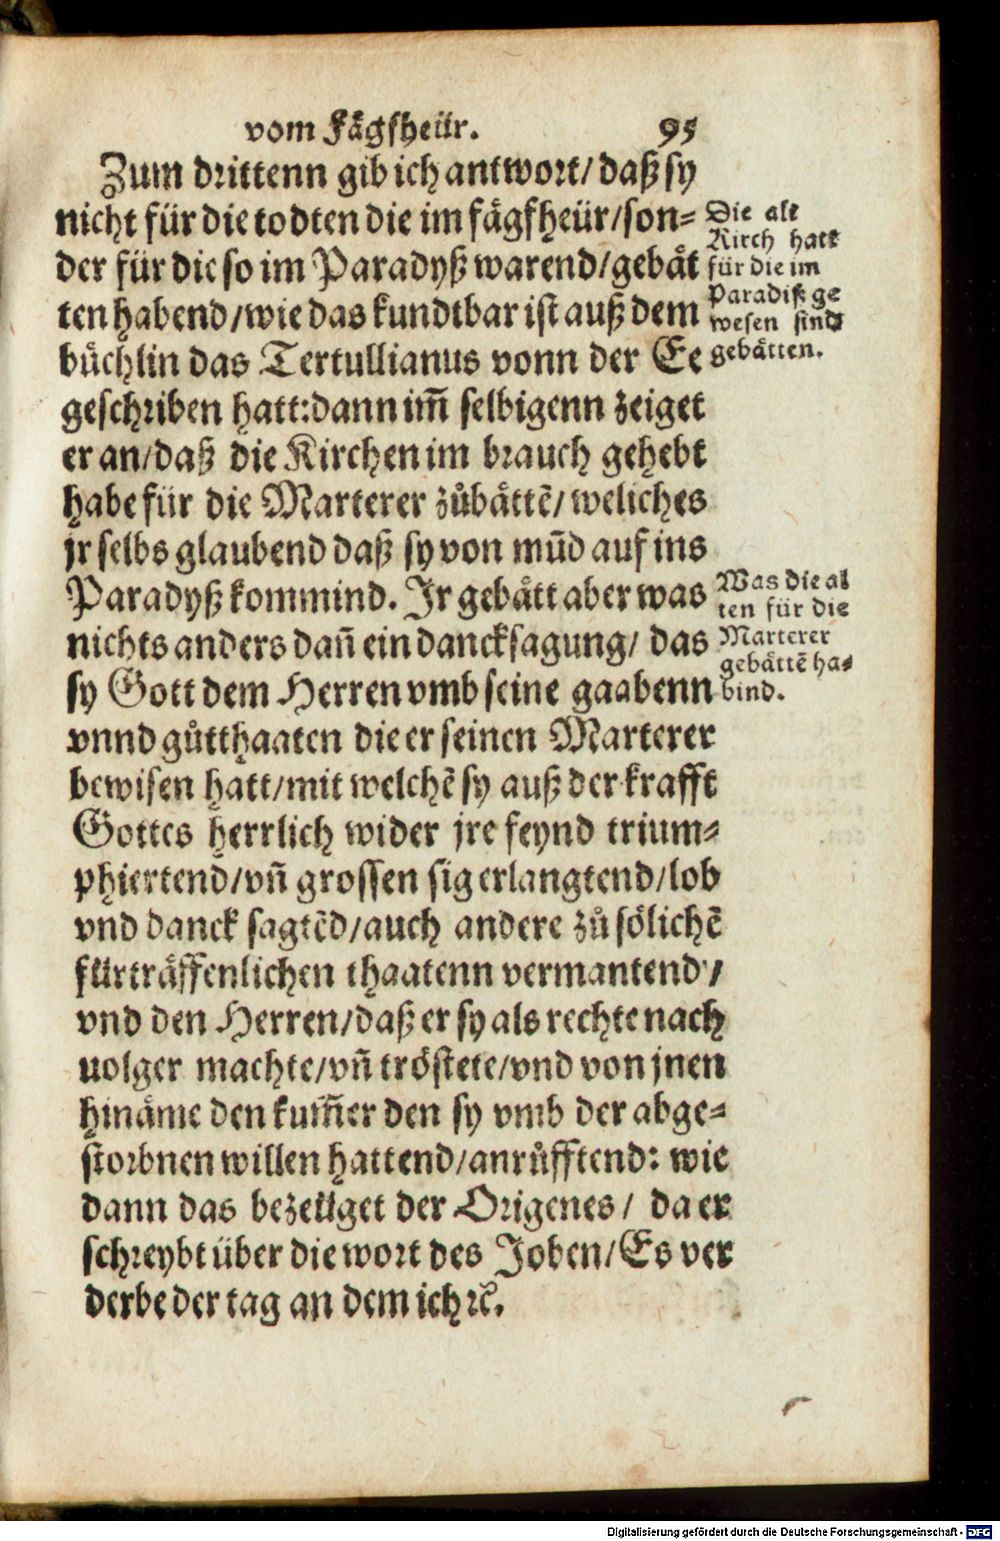 vom Fägfheür. 95
Zum drittenn gib ich antwort/ daß sy
nicht für die todten die im fägfheür/son⸗
der für die so im Paradyß warend/gebät
ten habend/wie das kundtbar ist auß dem
büchlin das Tertullianus vonn der Ee
geschriben hatt:dann im̃ selbigenn zeiget
er an/daß die Kirchen im brauch gehebt
habe für die Marterer zůbättẽ/weliches
jr selbs glaubend daß sy von mũd auf ins
Paradyß kommind. Ir gebätt aber was
nichts anders dañ ein dancksagung/ das
sy Gott dem Herren vmb seine gaabenn
vnnd gůtthaaten die er seinen Marterer
bewisen hatt/mit welchẽ sy auß der krafft
Gottes herrlich wider jre feynd trium⸗
phiertend/vñ grossen sig erlangtend/lob
vnd danck sagtẽd/auch andere zů sölichẽ
fürträffenlichen thaatenn vermantend/
vnd den Herren/daß er sy als rechte nach
uolger machte/vñ tröstete/vnd von jnen
hinäme den kum̃er den sy vmb der abge⸗
storbnen willen hattend/anrůfftend: wie
dann das bezeüget der Origenes/ da er
schreybt über die wort des Joben/Es ver
derbe der tag an dem ich ꝛc̃.
Die alt
Kirch hatt
für die im
Paradiß ge
wesen sind
gebätten.
Was die al
ten für die
Marterer
gebättẽ ha⸗
bind.
Digitalisierung gefördert durch die Deutsche Forschungsgemeinschaft - DFG